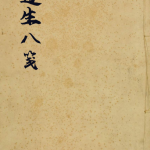 遵生八箋